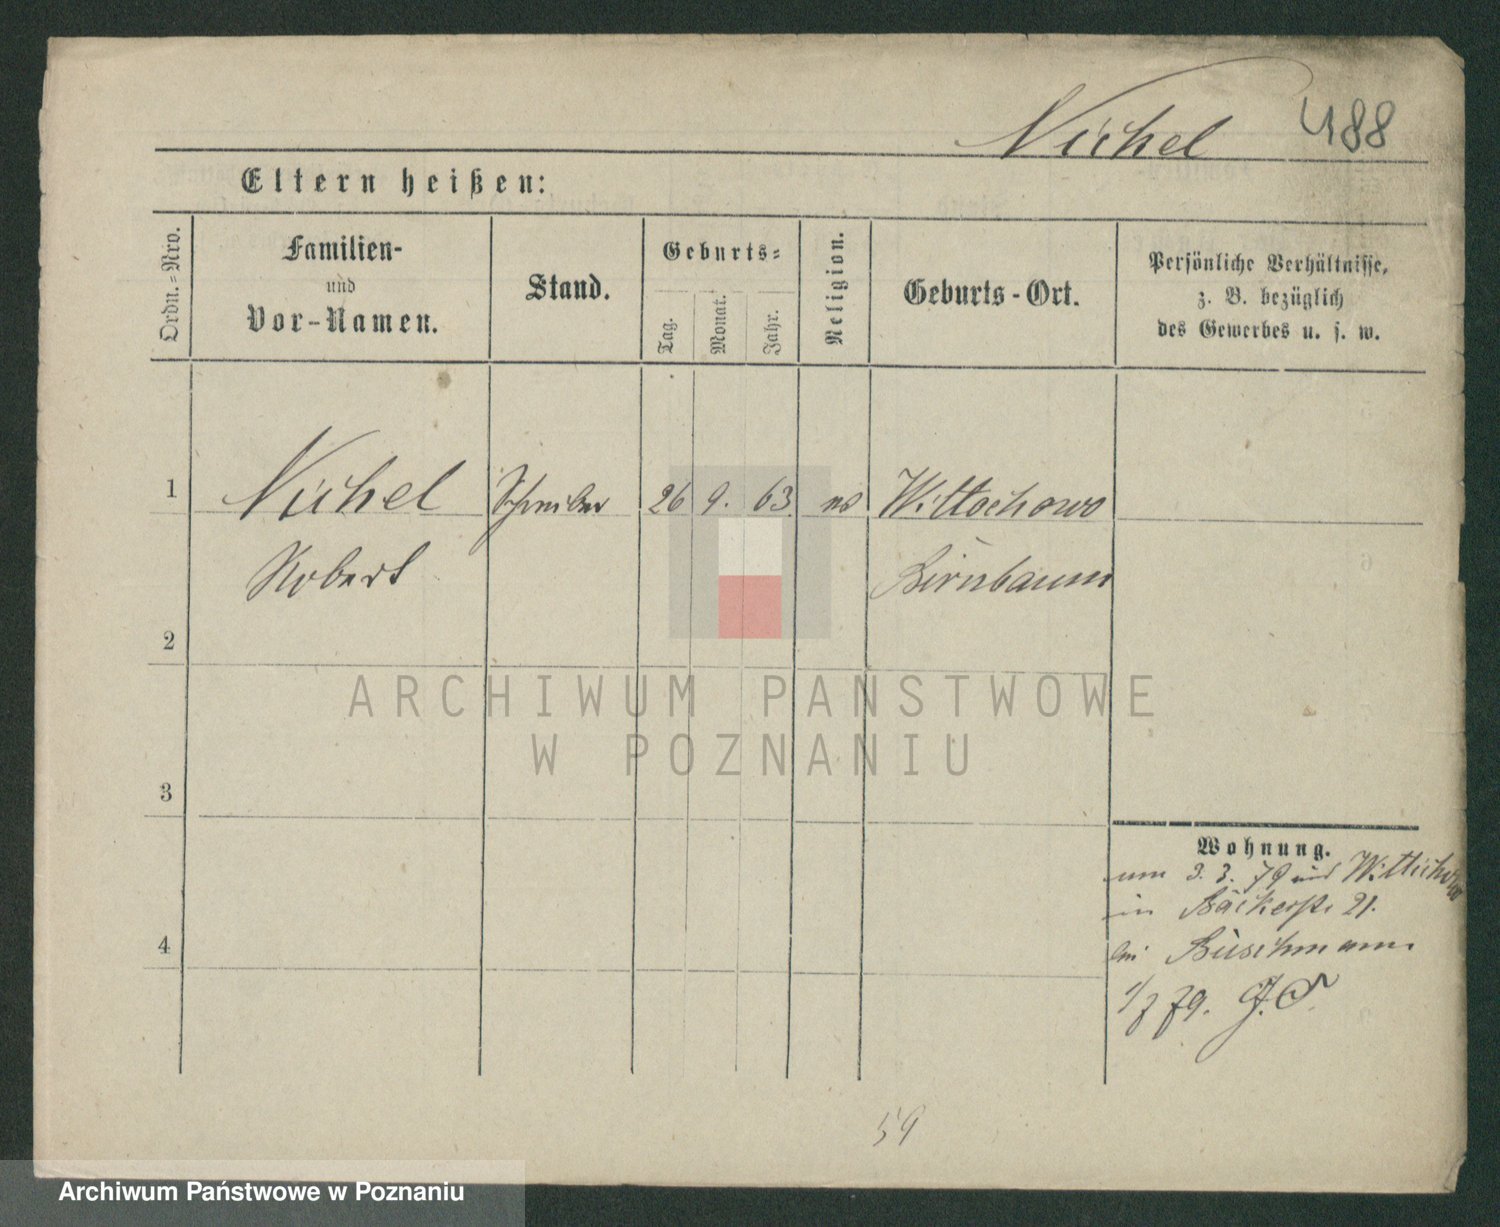 Nichel 488
Eltern heißen:
Ordn.=Nro.
Familien-
und
Vor-Namen.
Stand.
Geburts=
Tag.
Monat.
Jahr.
Religion.
Geburts-Ort.
Persönliche Verhältnisse,
z. B. bezüglich
des Gewerbes u. s. w.
1 Nichel Schreiber 26 9. 63.
Robert Birnbaum
2
3
4
Wohnung.
3. 3. 79
in Bäckerstr 21.
bei Buschmann
79.
59
ARCHIWUM PANSTWOWE
W POZNANIU
Archiwum Państwowe w Poznaniu